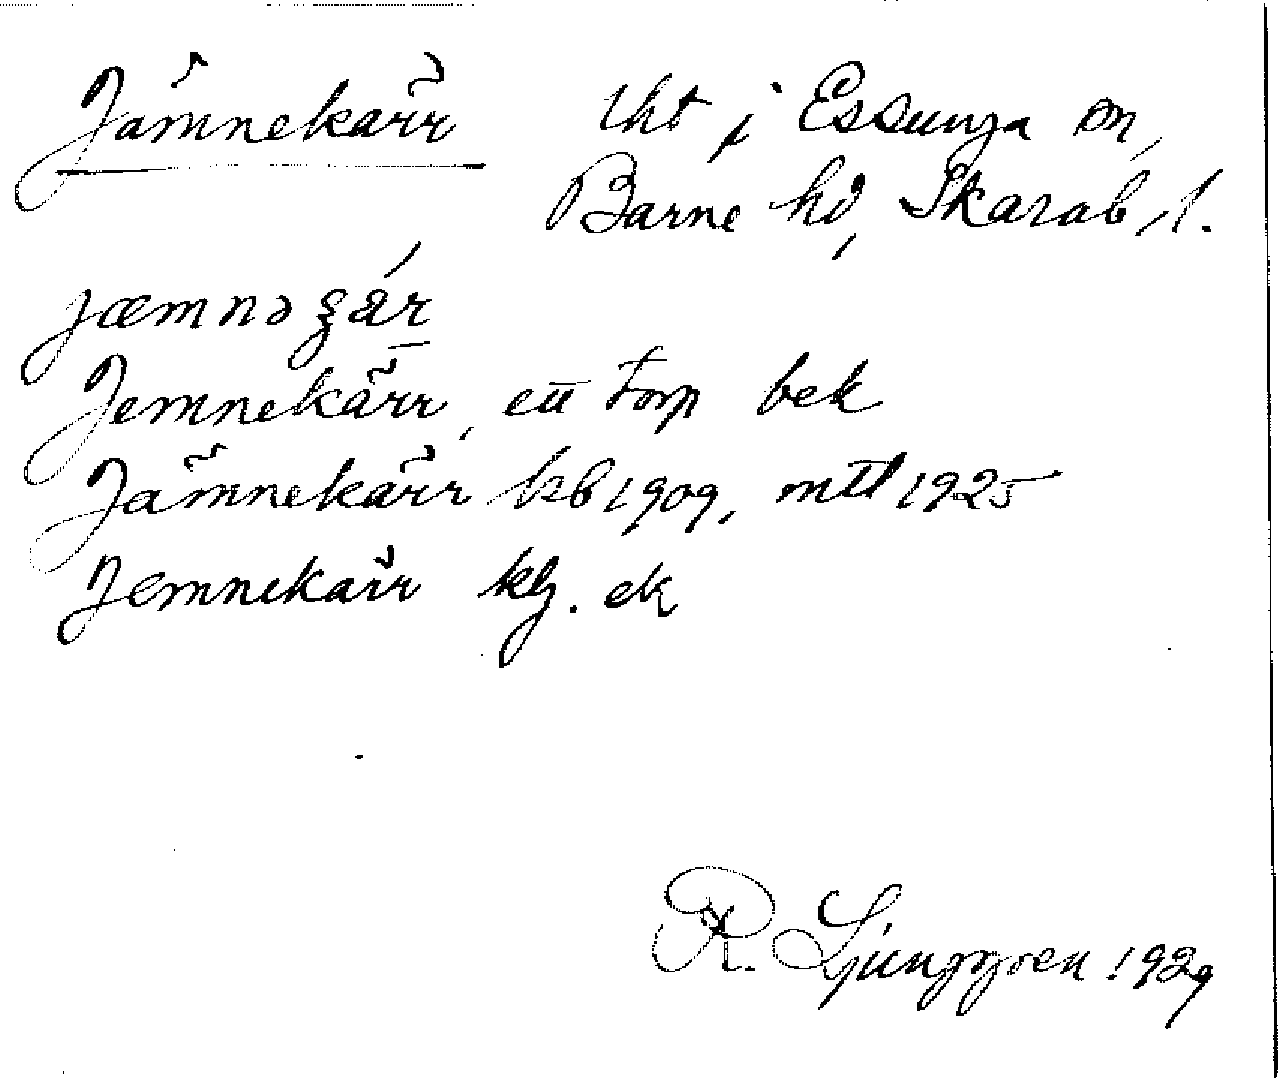 Jämnekärr lht i Essunga sn,
Barne hd, Skarab. l.
jæmnəʒár
Jemnekärr, ett torp bek
Jämnekärr kb 1909, mtl 1925
Jemnekärr klj. ek
R. Ljunggren 1929